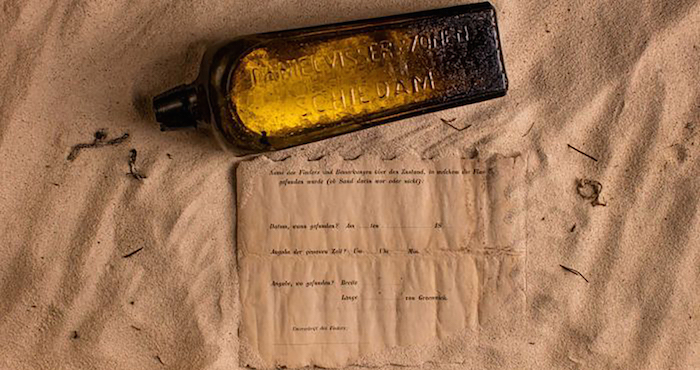 DANIEL VISSER & ZONEN
SCHIEDAM
Name des Finders und Bemerkungen über den Zustand, in welchem die
gefunden wurde (ob Sand darin war oder nicht):
Datum, wann gefunden? Am ten 18
Angabe der genauen Zeit? Um Uhr Min.
Angabe, wo gefunden? Breite
Länge von Greenwich.
Unterschrift des Finders: